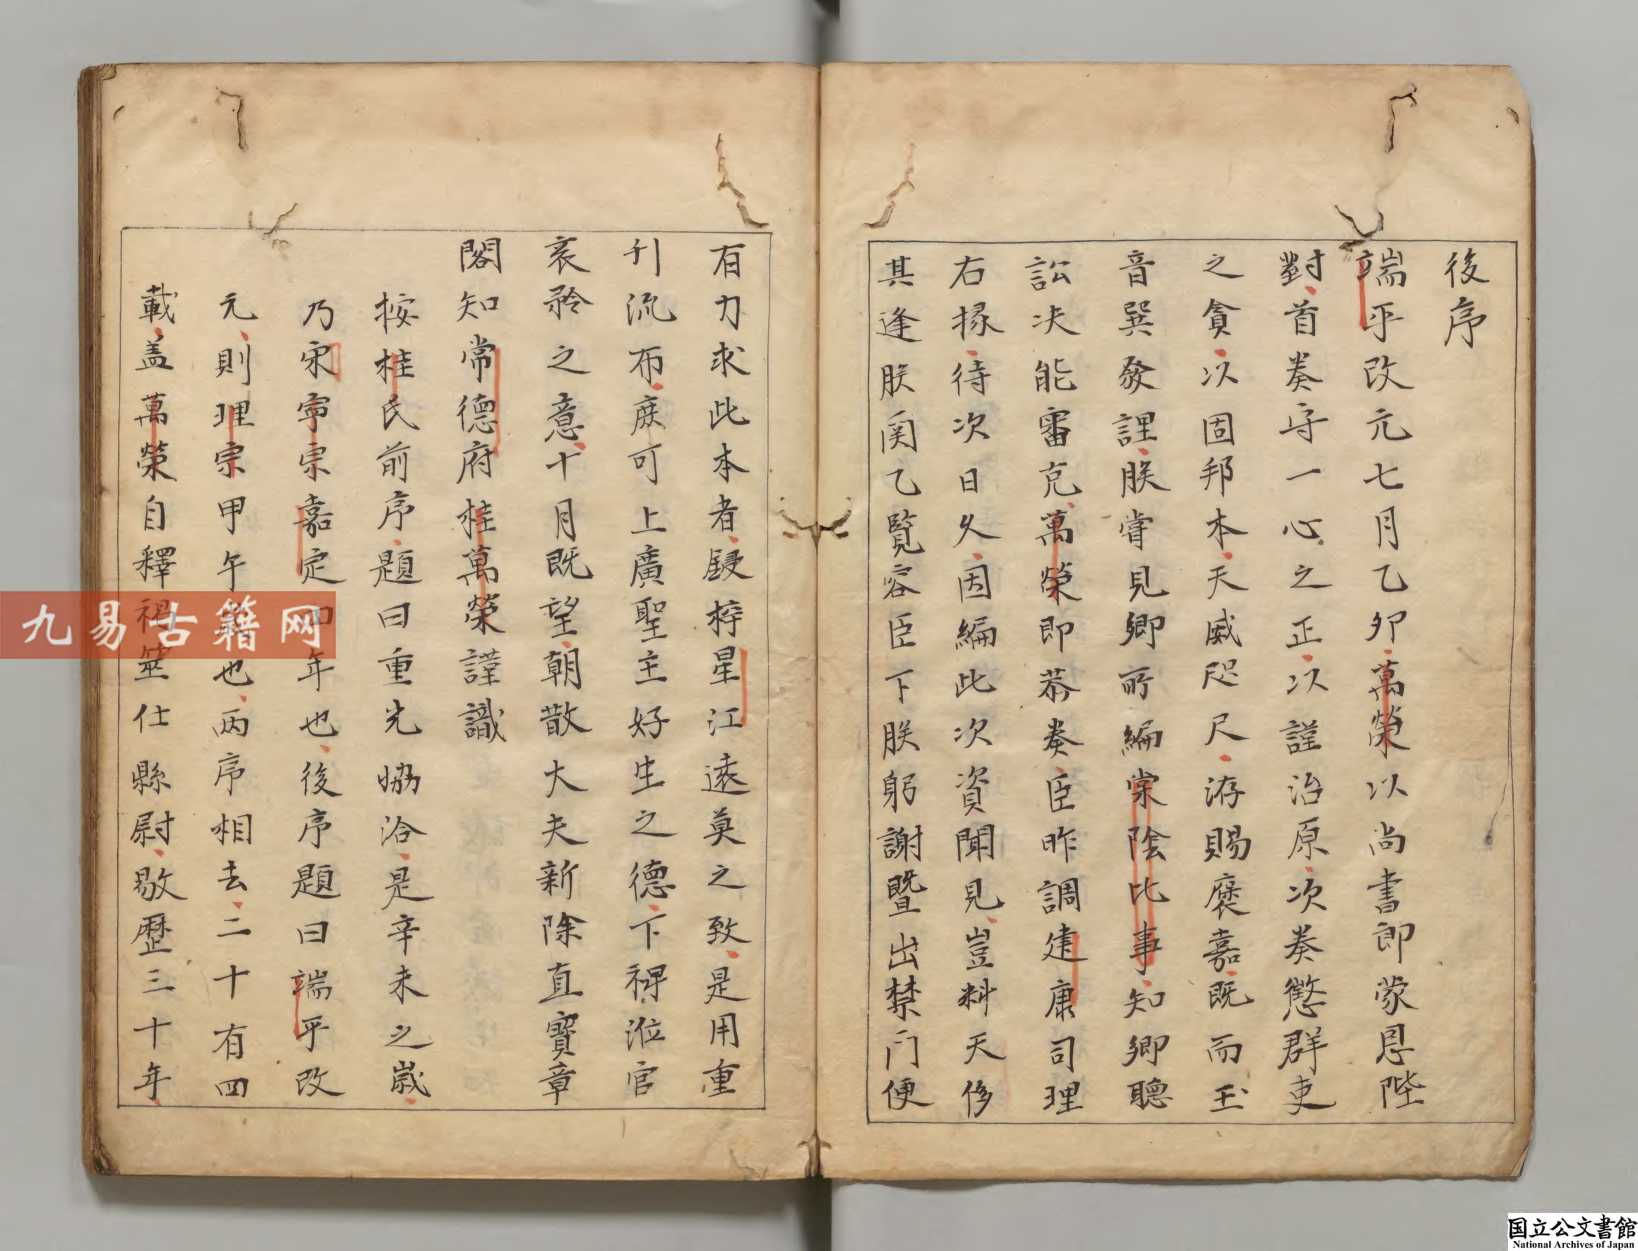 後序
端平改元七月乙卯萬榮以尚書郎蒙恩陛
對首奏守一心之正以謹治原次奏懲群吏
之貪以固邦本天威咫尺洊賜褒嘉既而玉
音巽發謹朕嘗見卿所編棠陰比事知卿聽
訟决能審克萬榮即恭奏臣昨調建康司理
右掾待次日久因編此次資聞見豈料天侈
其逢朕関乙覽容臣下朕躬謝暨出禁门便
有力求此本者鋟梓星江遠莫之致是用重
刊流布庶可上廣聖主好生之德下禆涖官
哀矜之意十月既望朝散大夫新除直寶章
閣知常德府桂萬榮謹識
按桂氏前序題曰重光協洽是辛未之歲
乃宋寧宗嘉定四年也後序題曰端平改
元則理宗甲午也兩序相去二十有四
載盖萬榮自釋褐筮仕縣尉敭歷三十年
九易古籍网
国立公文書館
National Archives of Japan